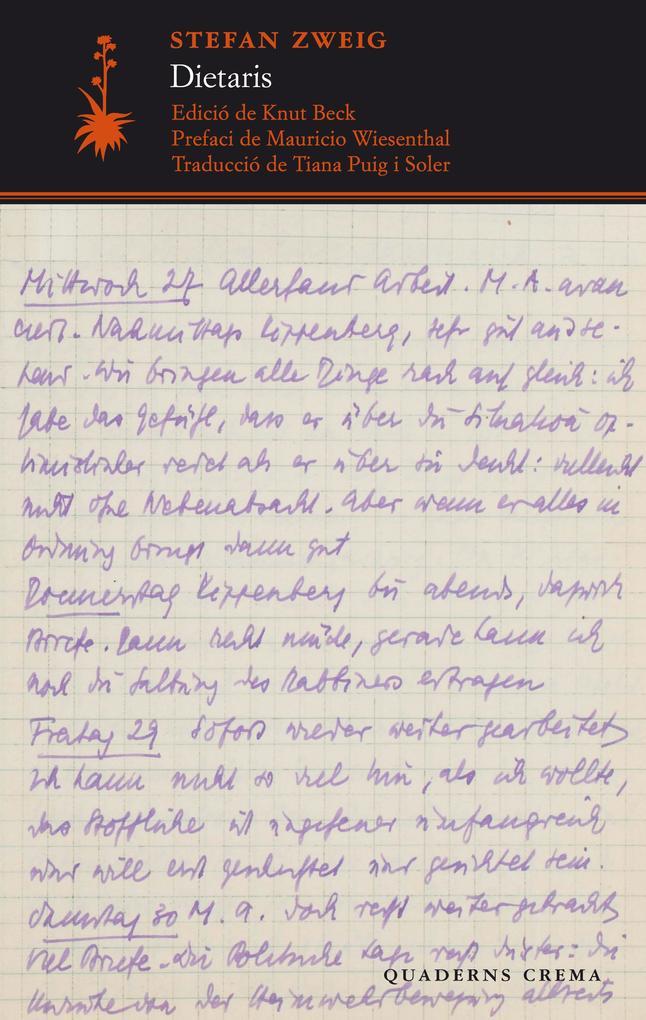 STEFAN ZWEIG
Dietaris
Edició de Knut Beck
Prefaci de Mauricio Wiesenthal
Traducció de Tiana Puig i Soler
Mittwoch 27 Allerhand Arbeit. M. A. avan
ciert. Nachmittags Kippenberg, sehr gut
Wir bringen alle Dinge rasch auf gleich: ich
habe das Gefühl, dass er über die Situation op-
timistischer redet als er über sie denkt: vielleicht
nicht ohne Nebenabsicht. Aber wenn er alles in
Ordnung bringt dann gut
Donnerstag Kippenberg bis abends,
Briefe. Dann recht müde, gerade kann ich
noch die des Rabbiners ertragen
Freitag 29 Sofort wieder weiter gearbeitet,
ich kann nicht so viel tun, als ich wollte,
das Stoffliche ist ungeheuer umfangreich
und will erst und gesichtet sein.
Samstag 30 M. A. doch recht weitergebracht,
viel Briefe. die Politische Lage recht düster: die
der Heimwehrbewegung
QUADERNS CREMA